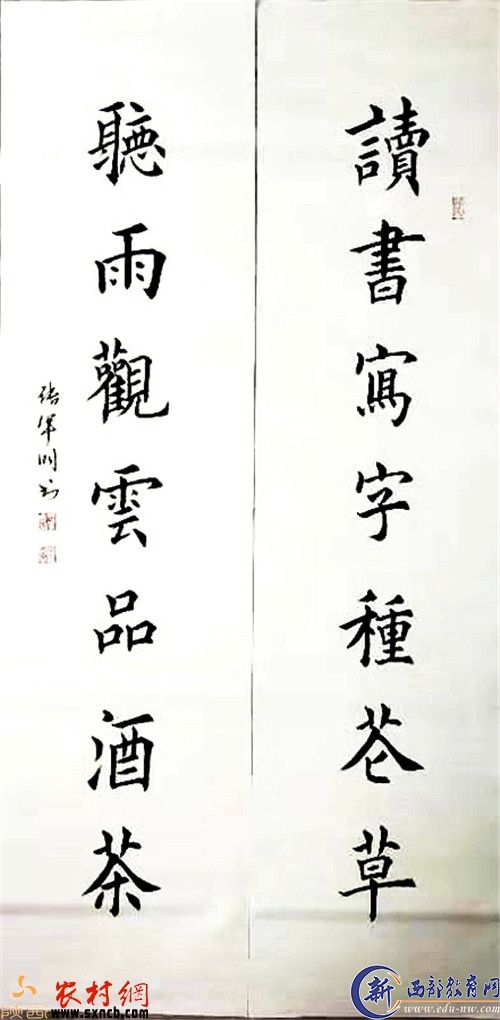 讀書寫字種花草
聽雨觀雲品酒茶
張軍明书
陕西
农村網
www.sxncb.com
新 西部教育网
www.edu-nw.com